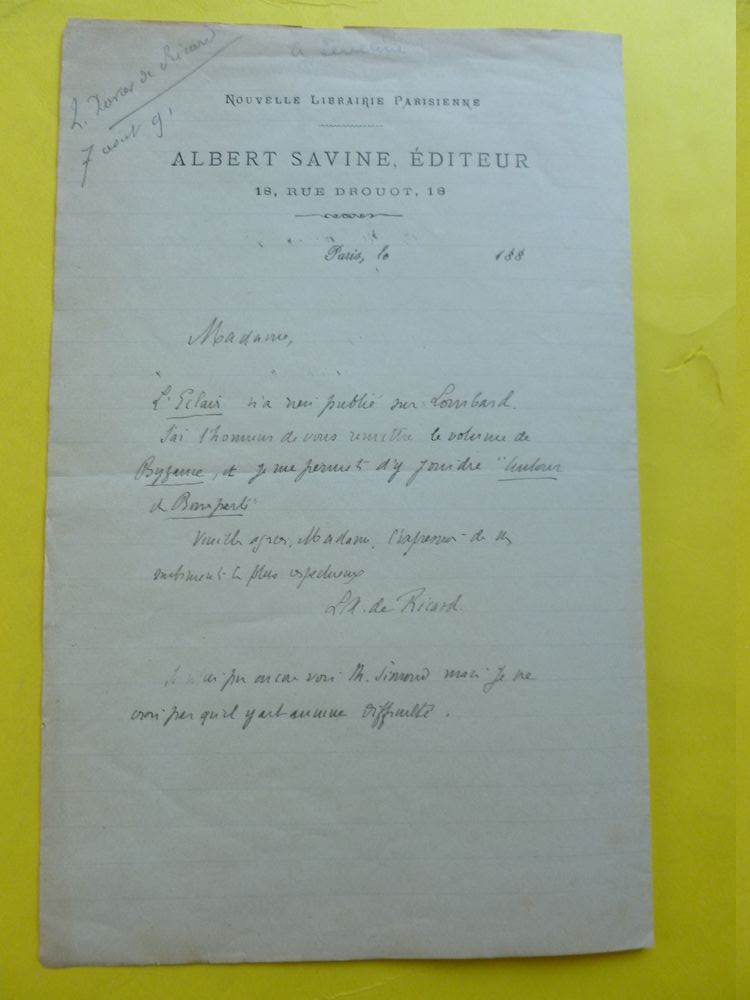 L. Xavier de Ricard
7 août 91
à
NOUVELLE LIBRAIRIE PARISIENNE
ALBERT SAVINE, ÉDITEUR
18, RUE DROUOT, 18
Paris, le 188
Madame,
L'Eclair n'a rien publié sur Lombard.
J'ai l'honneur de vous remettre le volume de
Byzance, et je me permets d'y joindre "Autour
de Bonaparte"
Veuillez agréer, Madame, l'expression de mes
sentiments les plus respectueux
L.X. de Ricard.
Je n'ai pu encore voir M. Simond mais je ne
crois pas qu'il y ait aucune difficulté.